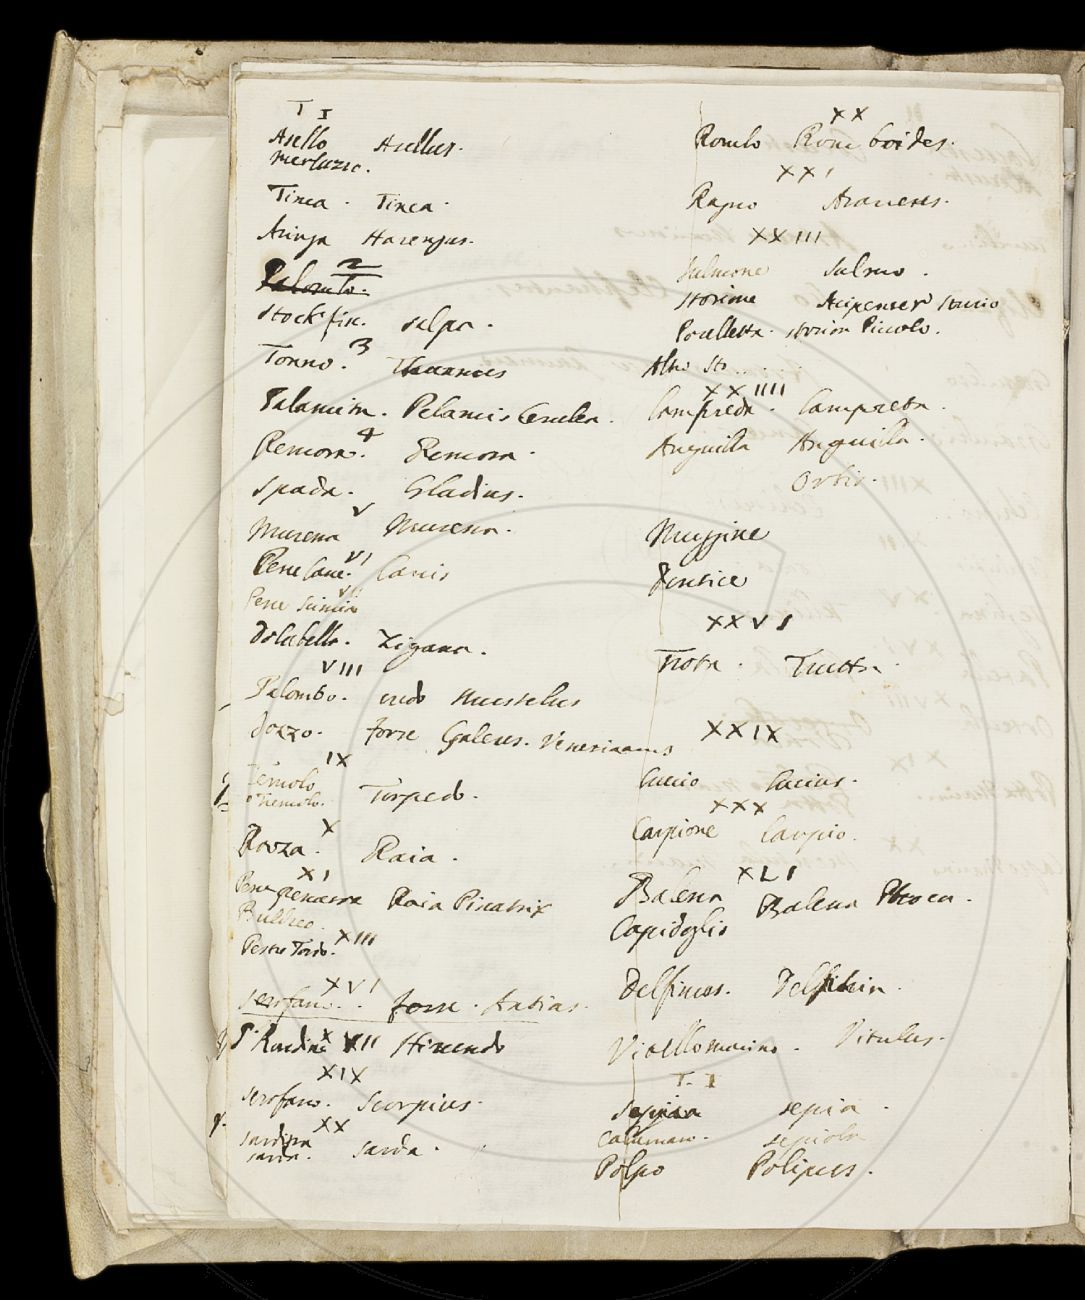 T I
Asello Asellus.
merluzzo.
Tinca. Tinca.
Aringa Harengus.
2
Palombo.
Stockfis. salpa.
3
Tonno. Thunnus
Palamita. Pelamis Cerulea.
4
Remora. Remora.
Spada. Gladius.
V
Murena Murena.
VI
Pesce Cane. Canis
VII
Pesce
Zigana.
VIII
Palombo. Mustelus
forse Galeus. Venerianus
IX
Temolo
o Tremolo. Torpedo.
X
Razza. Raia.
XI
Raia Piscatrix
XIII
Pesce Tordo.
XVI
Scrofano. forse. Antias.
XVII
P. Rondine Hirundo
XIX
Scrofano. Scorpius.
XX
Sardina
sarda. Sarda.
XX
Rombo Romboides.
XXI
Ragno Araneus.
XXIII
Salmone Salmo.
Storione Acipenser Sturio
Porcelletta. storion Piccolo.
Altro Sto...
XXIIII
Lampreda. Lampreta.
Anguilla Anguilla.
Muggine
Dentice
XXVI
Trota. Trutta.
XXIX
Luccio Lucius.
XXX
Carpione Carpio.
XLI
Balena Balena
Capidoglio
Delfinus. Delphin.
Vitello marino. Vitulus.
T. I
Sepia sepia.
Calamaro. sepiola
Polpo Polipus.